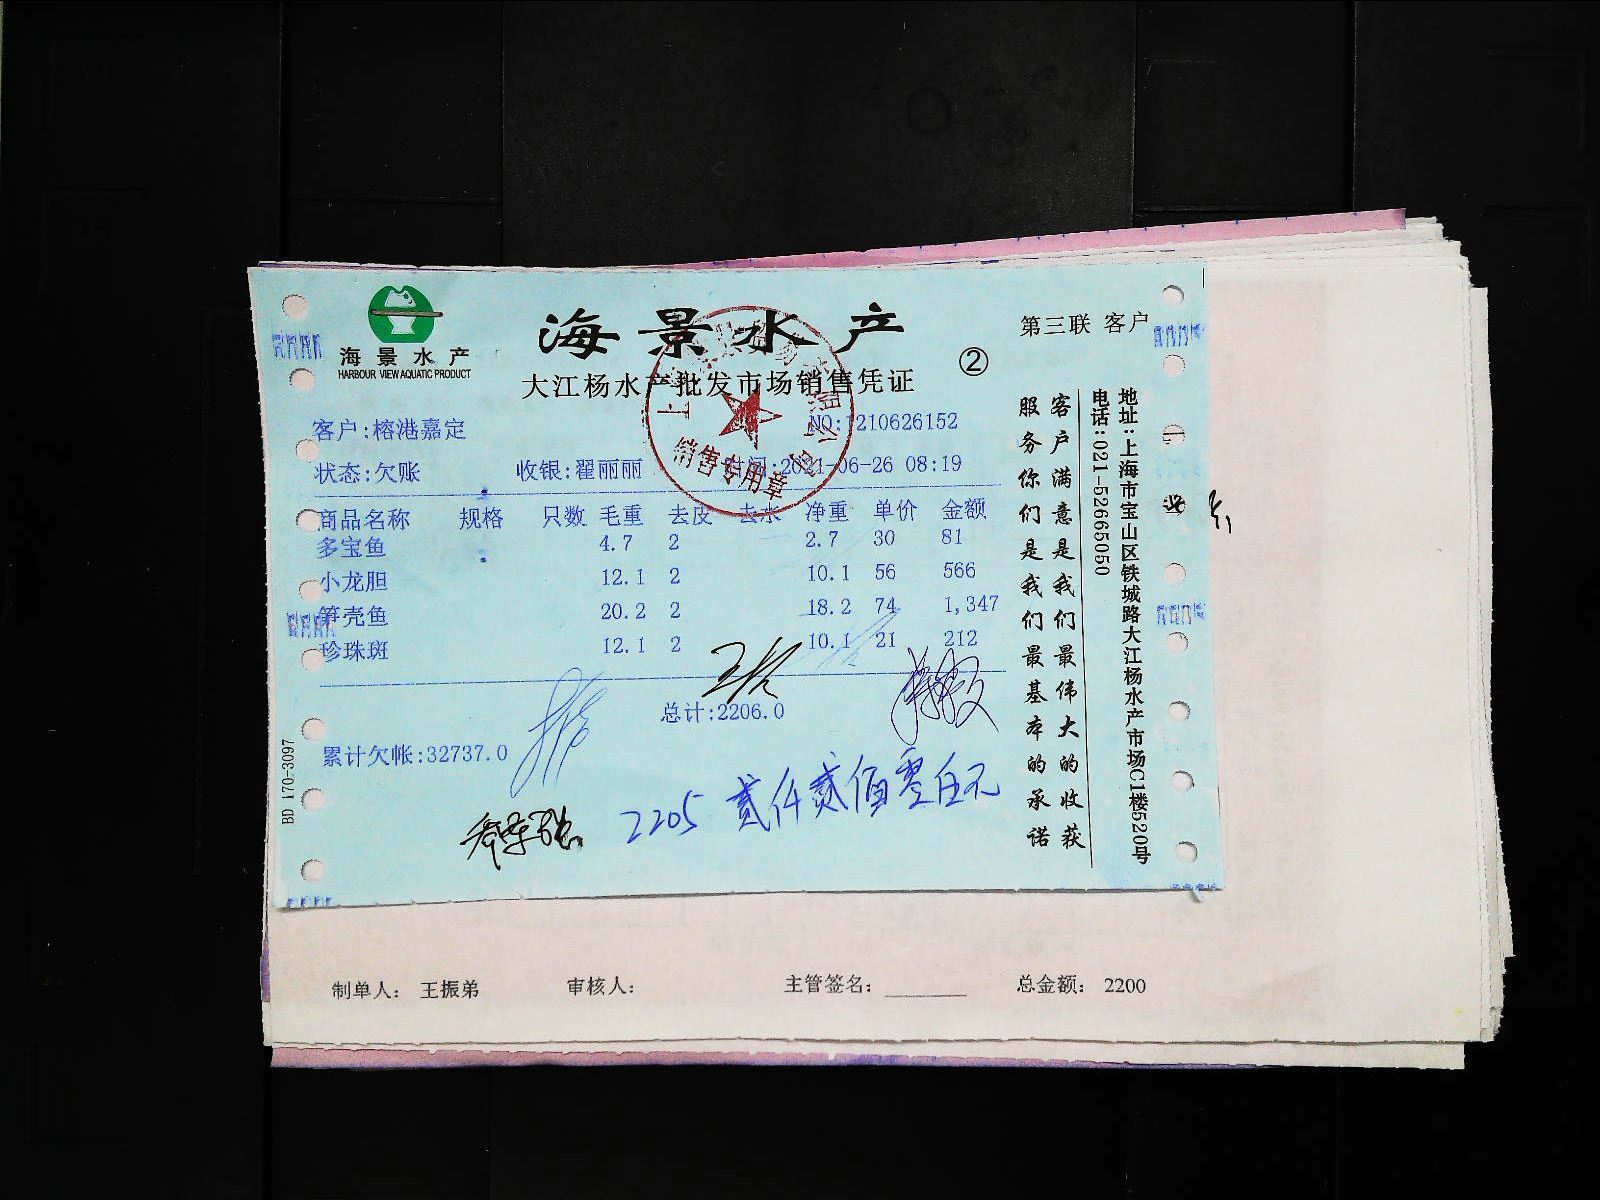 海景水产
HARBOUR VIEW AQUATIC PRODUCT
海景水产
大江杨水产批发市场销售凭证
②
第三联 客户
客户:榕港嘉定
NO:1210626152
状态:欠账 收银:翟丽丽 时间:2021-06-26 08:19
销售专用章
商品名称 规格 只数 毛重 去皮 去水 净重 单价 金额
多宝鱼 4.7 2 2.7 30 81
小龙胆 12.1 2 10.1 56 566
笋壳鱼 20.2 2 18.2 74 1,347
珍珠斑 12.1 2 10.1 21 212
总计:2206.0
累计欠帐:32737.0
2205 贰仟贰佰零伍元
BD 170-3097
地址:上海市宝山区铁城路大江杨水产市场C1楼520号
电话:021-52665050
客户满意是我们最伟大的收获
服务你们是我们最基本的承诺
制单人: 王振弟 审核人: 主管签名: 总金额: 2200